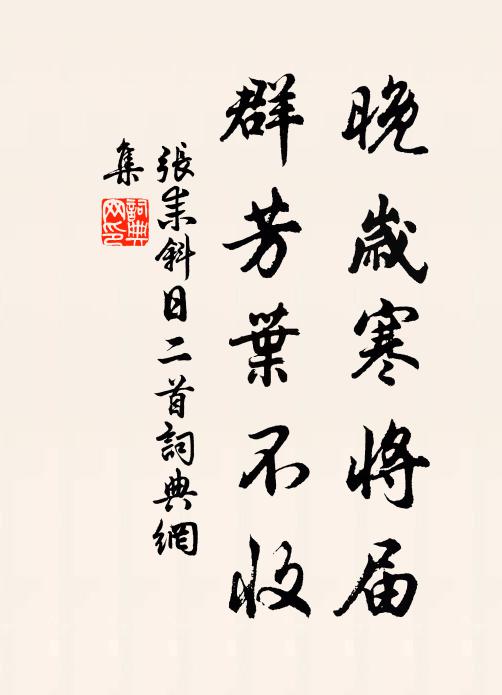 晚歲寒將届
群芳葉不收
張耒斜日二首詞典網
集
詞典網印